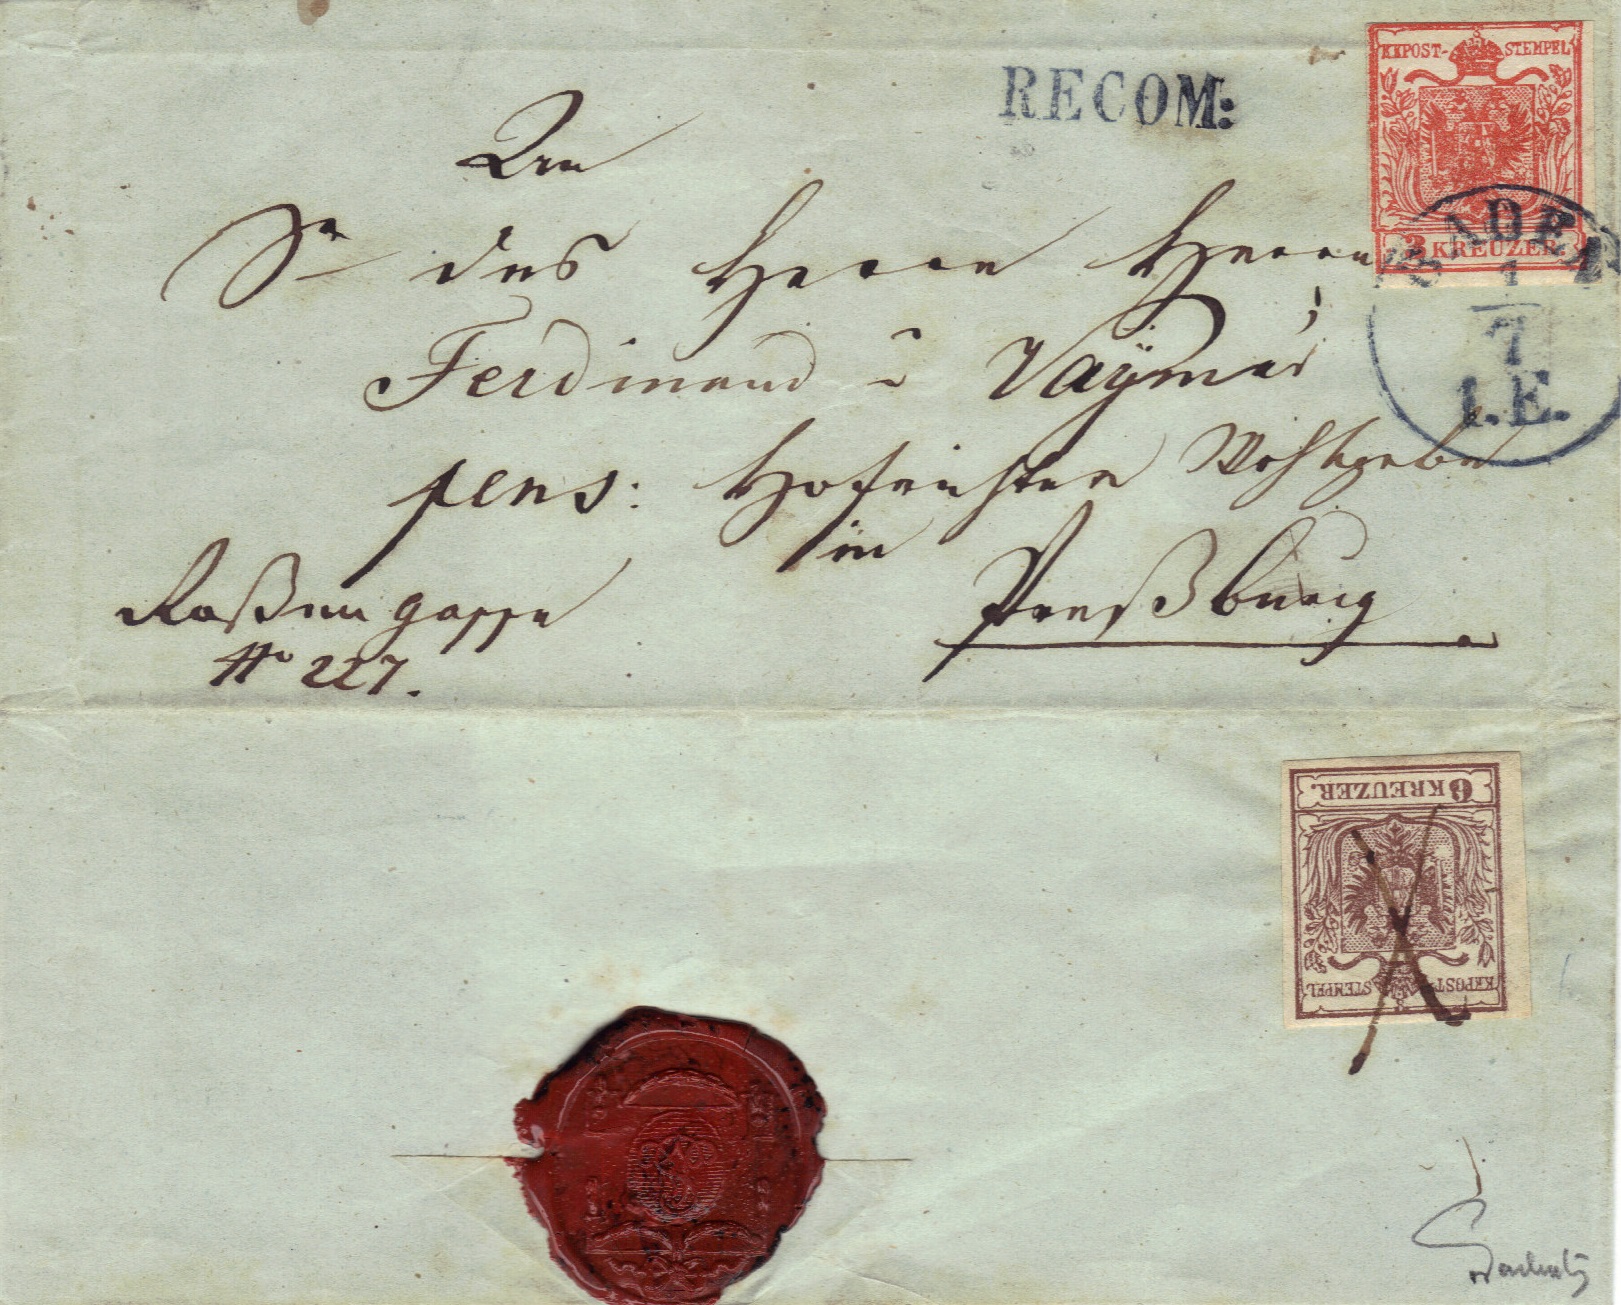 RECOM:
KKPOST-STEMPEL
3 KREUZER
BADEN
1
7
I.E.
An
Sr des Herrn Herrn
Ferdinand v Vaÿmár
pens: Hofrichter Wohlgebn
in
Preßburg
Roßengasse
No 227.
6 KREUZER.
KKPOST-STEMPEL